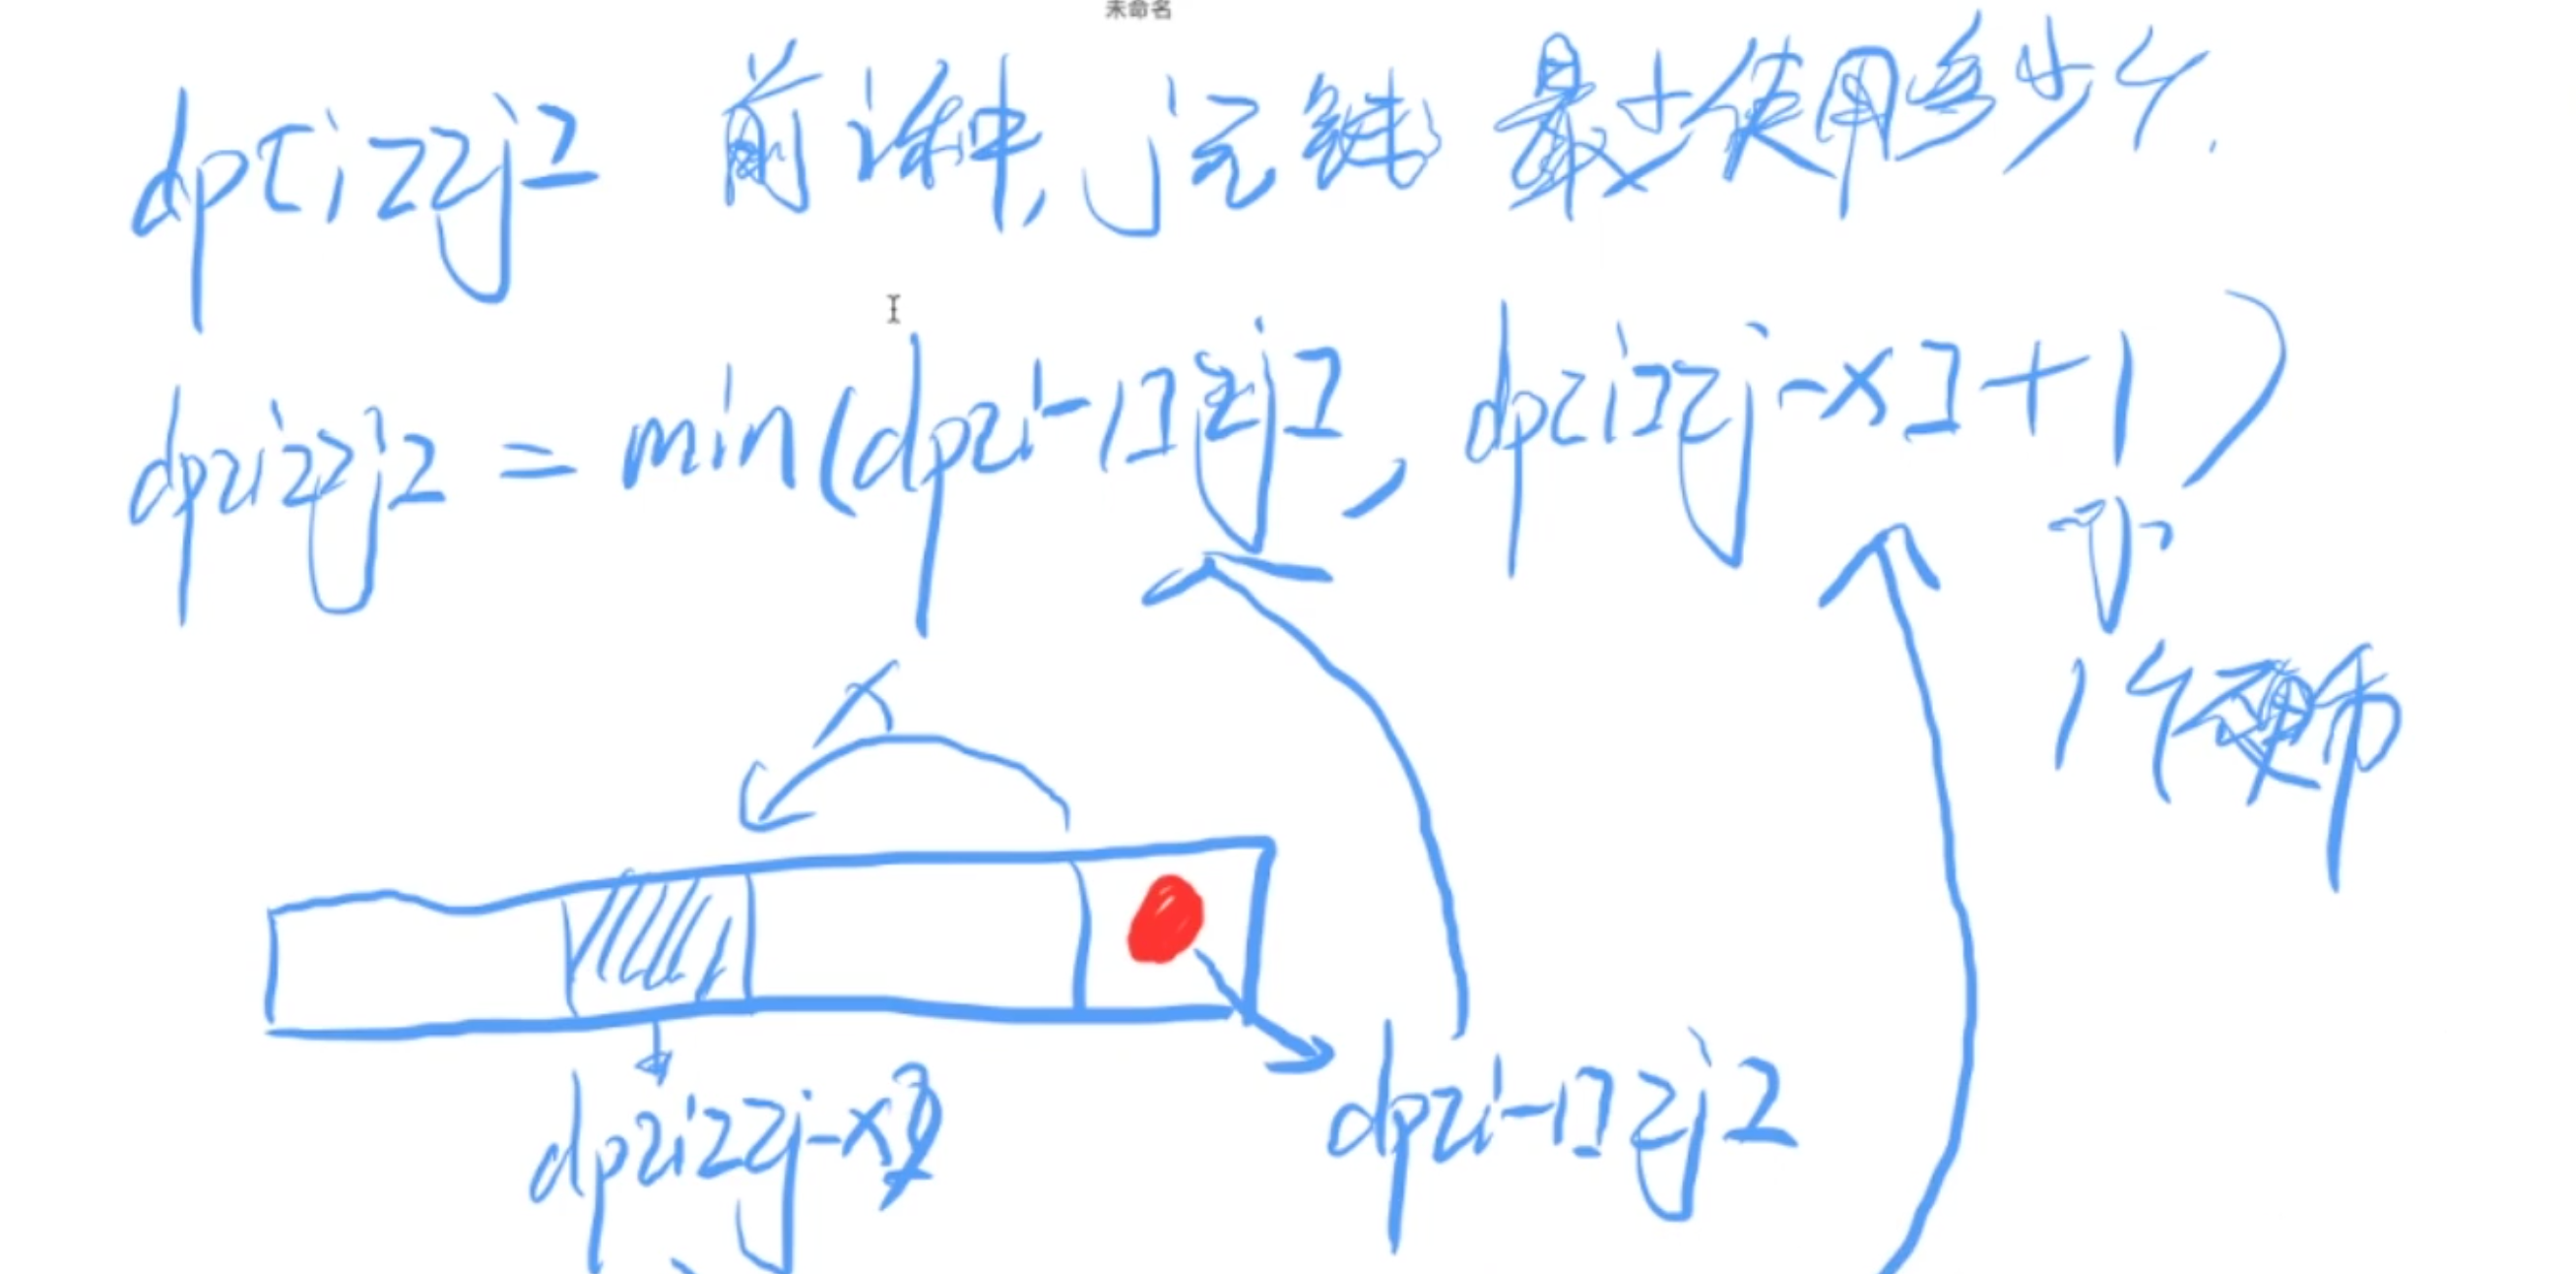 未命名
dp[i][j] 前i种,j元钱 最少使用多少个.
dp[i][j] = min(dp[i-1][j], dp[i][j-x]+1)
1个硬币
x
dp[i][j-x]
dp[i-1][j]